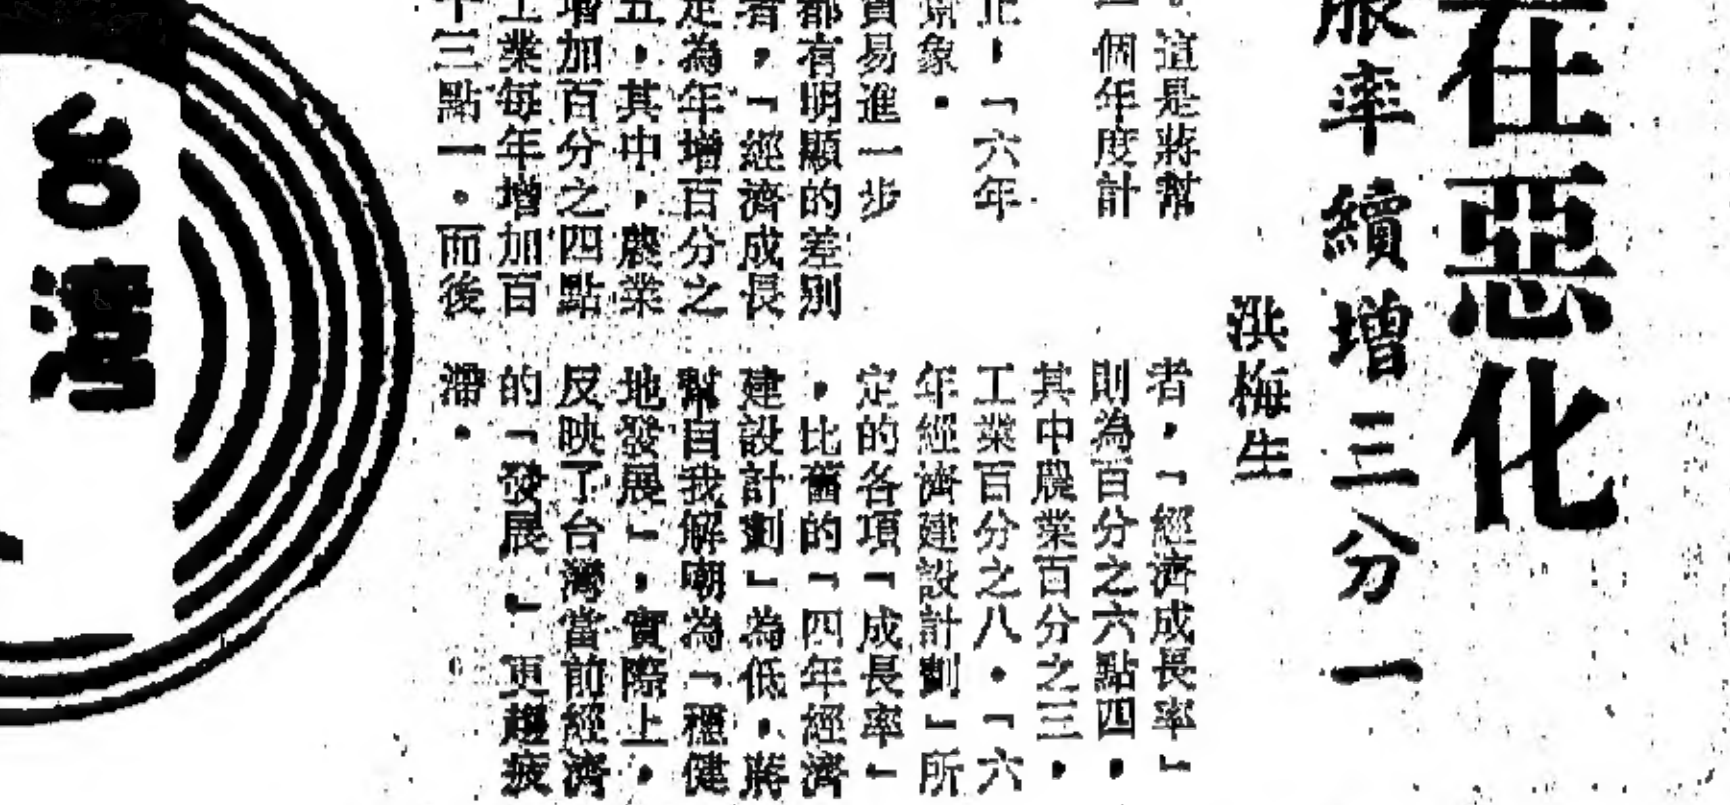 在惡化
脹率續增三分一
洪梅生
。這是將幫
一個年度計
止，「六年
象．
貿易進一步
都有明顯的差別
者，「經濟成長
定為年增百分之
五，其中，農業
增加百分之四點
工業每年增加百
十三點一。而後
者，「經濟成長率」
則為百分之六點四，
其中農業百分之三，
工業百分之八。「六
年經濟建設計劃」所
定的各項「成長率」
，比舊的「四年經濟
建設計劃」為低，蔣
幫自我解嘲為「穩健
地發展」，實際上，
反映了台灣當前經濟
的「發展」更趨疲
滯．
台灣